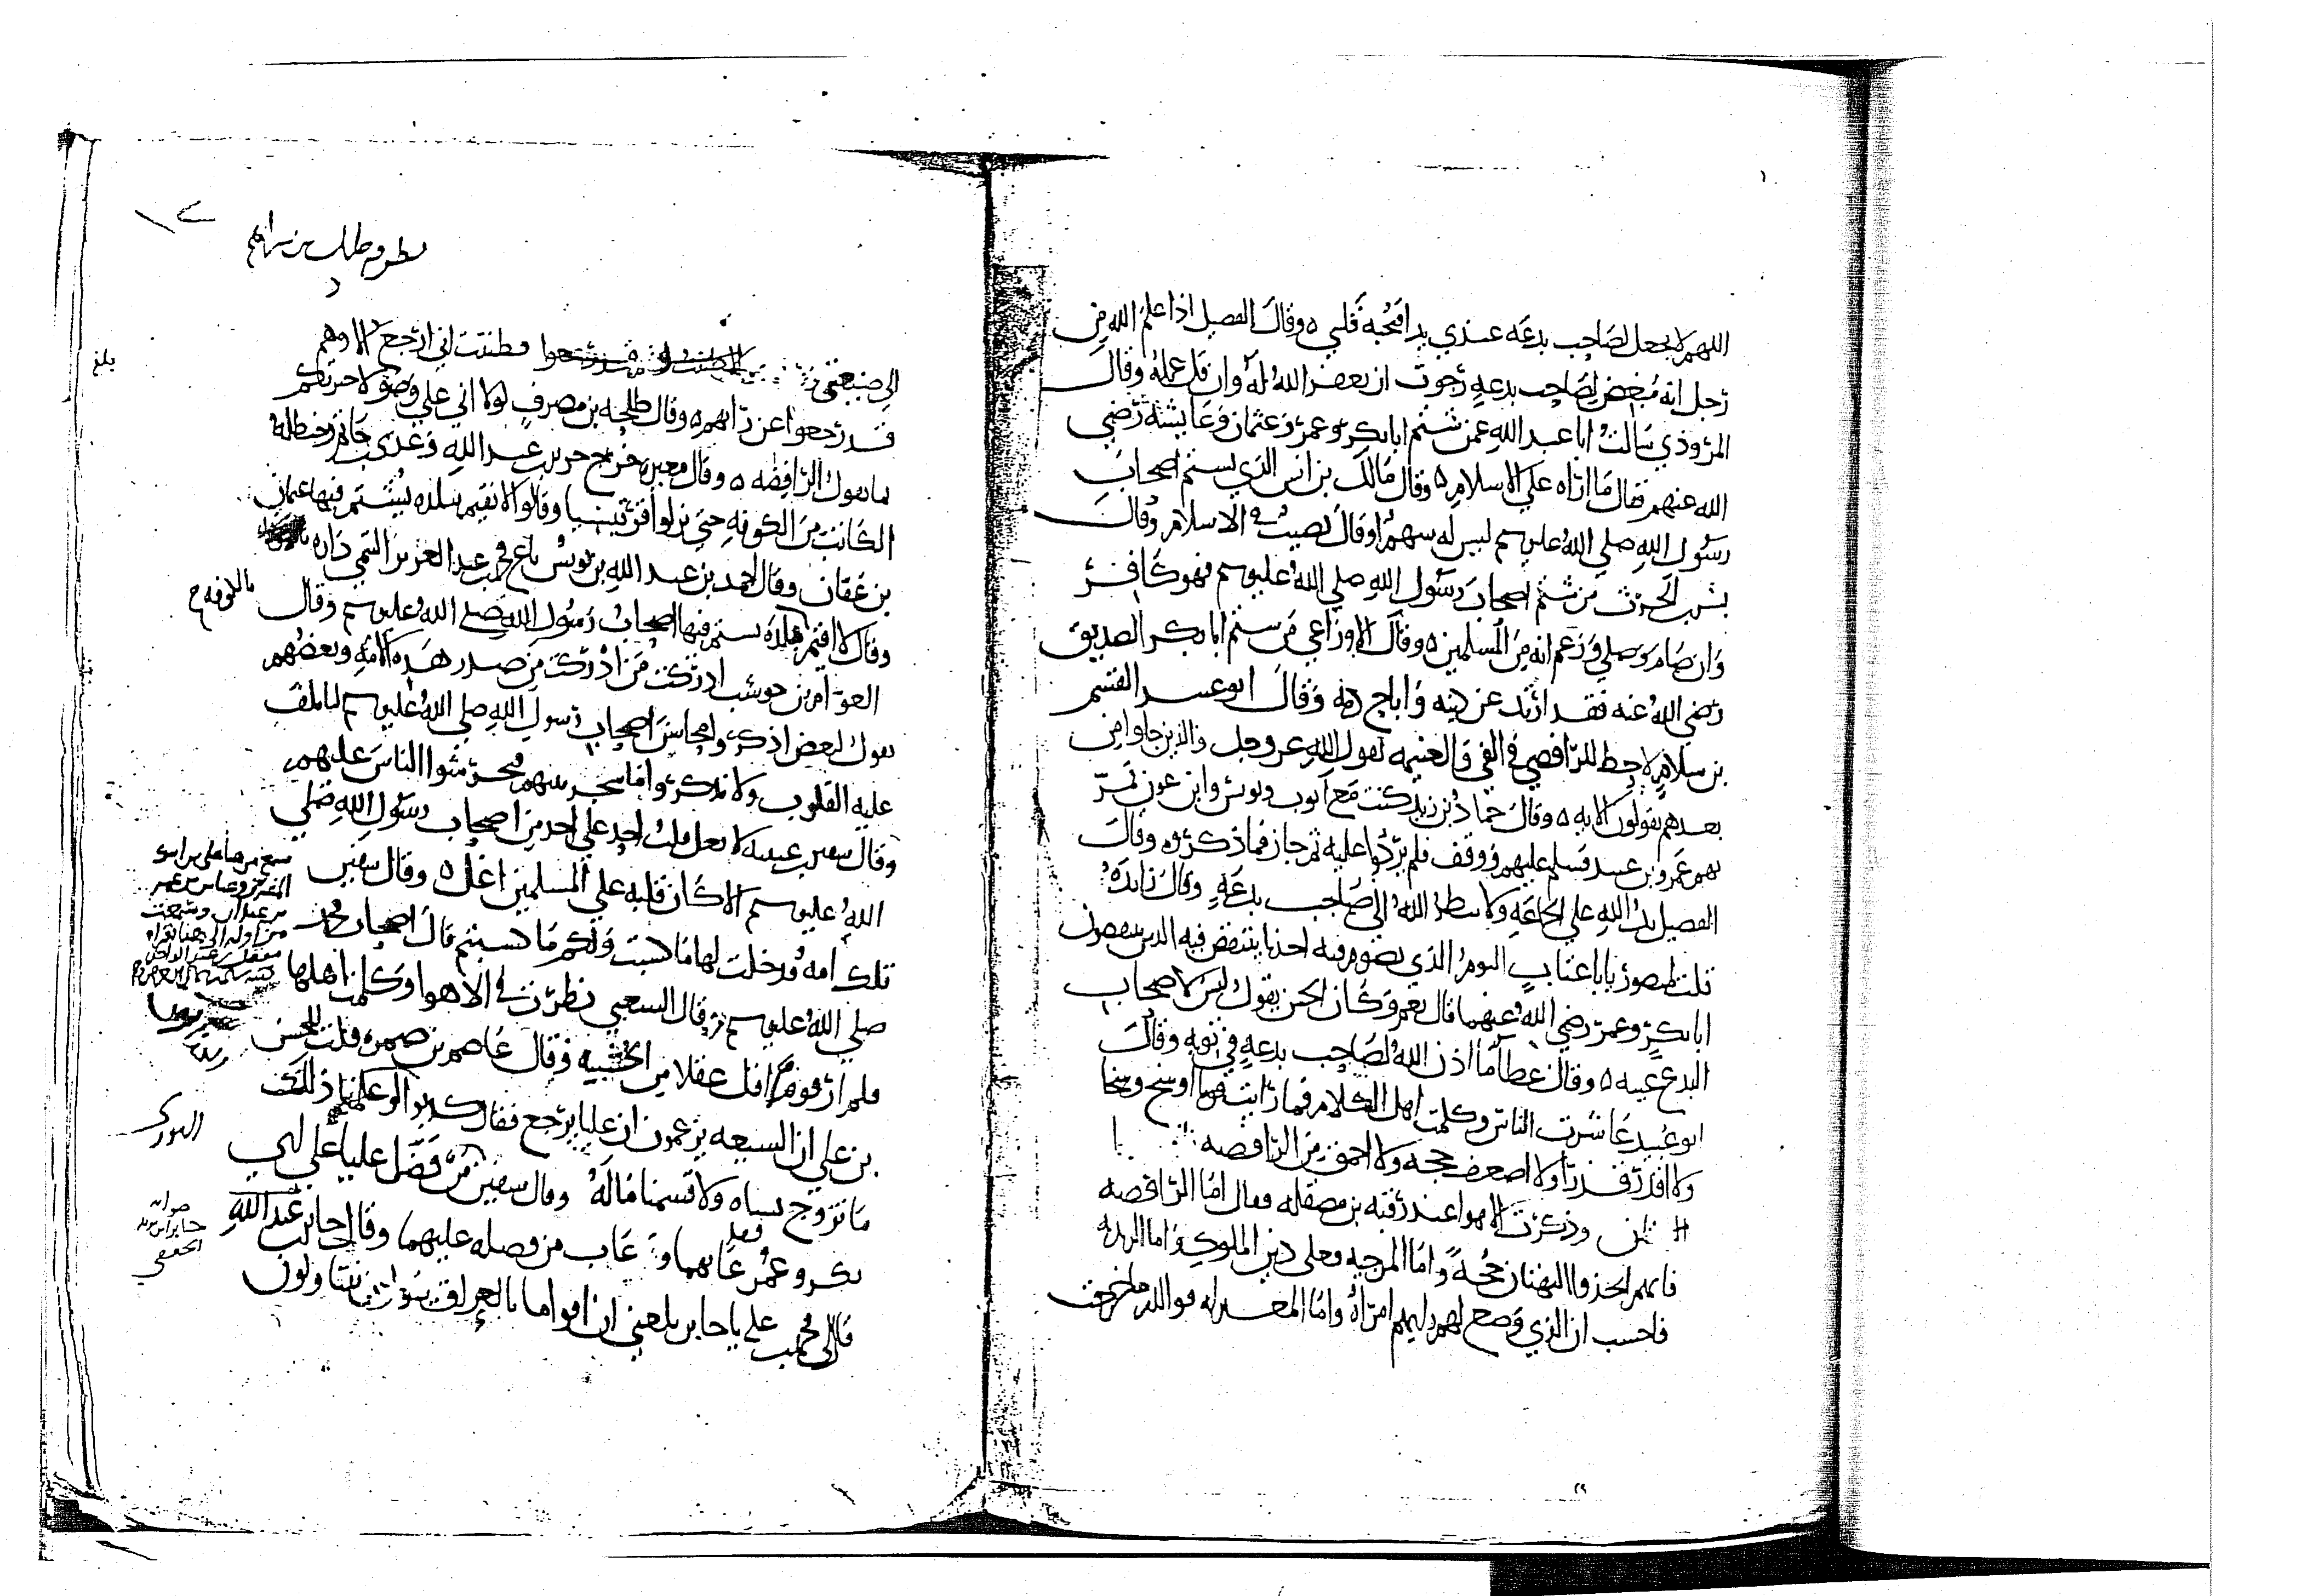 اللهم لا تجعل لصاحب بدعه عندي يدا فيحبه قلبي ه وقال الفضيل اذا علم الله من
رجل انه مبغض لصاحب بدعه رجوت ان يغفر الله له وان قل عمله وقال
المروذي سالت ابا عبد الله عمن شتم ابا بكر وعمر وعثمان وعايشه رضي
الله عنهم فقال ما اراه على الاسلام ه وقال مالك بن انس الذي يشتم اصحاب
رسول الله صلي الله عليه وسلم ليس له سهم او قال نصيب في الاسلام وقال
بشر بن الحرث من شتم اصحاب رسول الله صلي الله عليه وسلم فهو كافر
وان صام وصلي وزعم انه من المسلمين ه وقال الاوزاعي من شتم ابا بكر الصديق
رضي الله عنه فقد ارتد عن دينه واباح دمه وقال ابو عبيد القسم
بن سلام لا حظ للرافضي في الفي والغنيمه لقول الله عز وجل والذين جاوا من
بعدهم يقولون الايه ه وقال حماد بن زيد كنت مع ايوب ويونس وابن عون فمر
بهم عمرو بن عبيد فسلم عليهم ووقف فلم يردوا عليه ثم جاز فما ذكروه وقال
الفضيل يد الله علي الجماعه ولا ينظر الله الي صاحب بدعه وقال زايده
قلت لمنصور يا با عتاب اليوم الذي يصوم فيه احدنا ينتقص فيه الذين ينتقصون
ابا بكر وعمر رضي الله عنهما قال نعم وكان الحسن يقول ليس لاصحاب
البدع غيبه ه وقال عطا ما اذن الله لصاحب بدعه في توبه وقال
ابو عبيد عاشرت الناس وكلمت اهل الكلام فما رايت قوما اوسخ وسخا
ولا اقذر قذرا ولا اضعف حجه ولا احمق من الرافضه
وذكرت الاهوا عند رقبه بن مصقله فقال اما الرافضه
فانهم اتخذوا البهتان حجه واما المرجيه فعلي دين الملوك واما الزيديه
فاحسب ان الذي وضع لهم رايهم امراه واما المعتزله فوالله ما خرجت
الي ضيعتي فظننت اني ارجع الا وهم
قد رجعوا عن رايهم ه وقال طلحه بن مصرف لولا اني علي وضو لاخبرتكم
بما تقول الرافضه ه وقال مغيره خرج جرير بن عبد الله وعدي بن حاتم وحنظله
الكاتب من الكوفه حتي نزلوا قرقيسيا وقالوا لا نقيم ببلده يشتم فيها عثمان
بن عفان وقال احمد بن عبد الله بن يونس باع محمد بن عبد العزيز التيمي داره
بالكوفه
وقال لا اقيم ببلده يشتم فيها اصحاب رسول الله صلي الله عليه وسلم وقال
العوام بن حوشب ادركت من ادركت من صدر هذه الامه وبعضهم
يقول لبعض اذكروا محاسن اصحاب رسول الله صلي الله عليه وسلم لتاتلف
عليه القلوب ولا تذكروا ما شجر بينهم فتحرشوا الناس عليهم
وقال سفين بن عيينه لا يغل قلب احد علي احد من اصحاب رسول الله صلي
الله عليه وسلم الا كان قلبه علي المسلمين اغل ه وقال سفين
تلك امه قد خلت لها ما كسبت ولكم ما كسبتم قال اصحاب محمد
صلي الله عليه وسلم وقال الشعبي نظرت في الاهوا وكلمت اهلها
فلم ار قوما اقل عقلا من الخشبيه وقال عاصم بن ضمره قلت للحسن
بن علي ان الشيعه يزعمون ان عليا يرجع فقال كذبوا لو علمنا ذلك
ما تزوج نساه ولا قسمنا ماله وقال سفين من فضل عليا علي ابي
بكر وعمر فقد عابهما وعاب من فضله عليهما وقال جابر
قال لي محمد بن علي يا جابر بلغني ان اقواما بالعراق يتناولون
بلغ